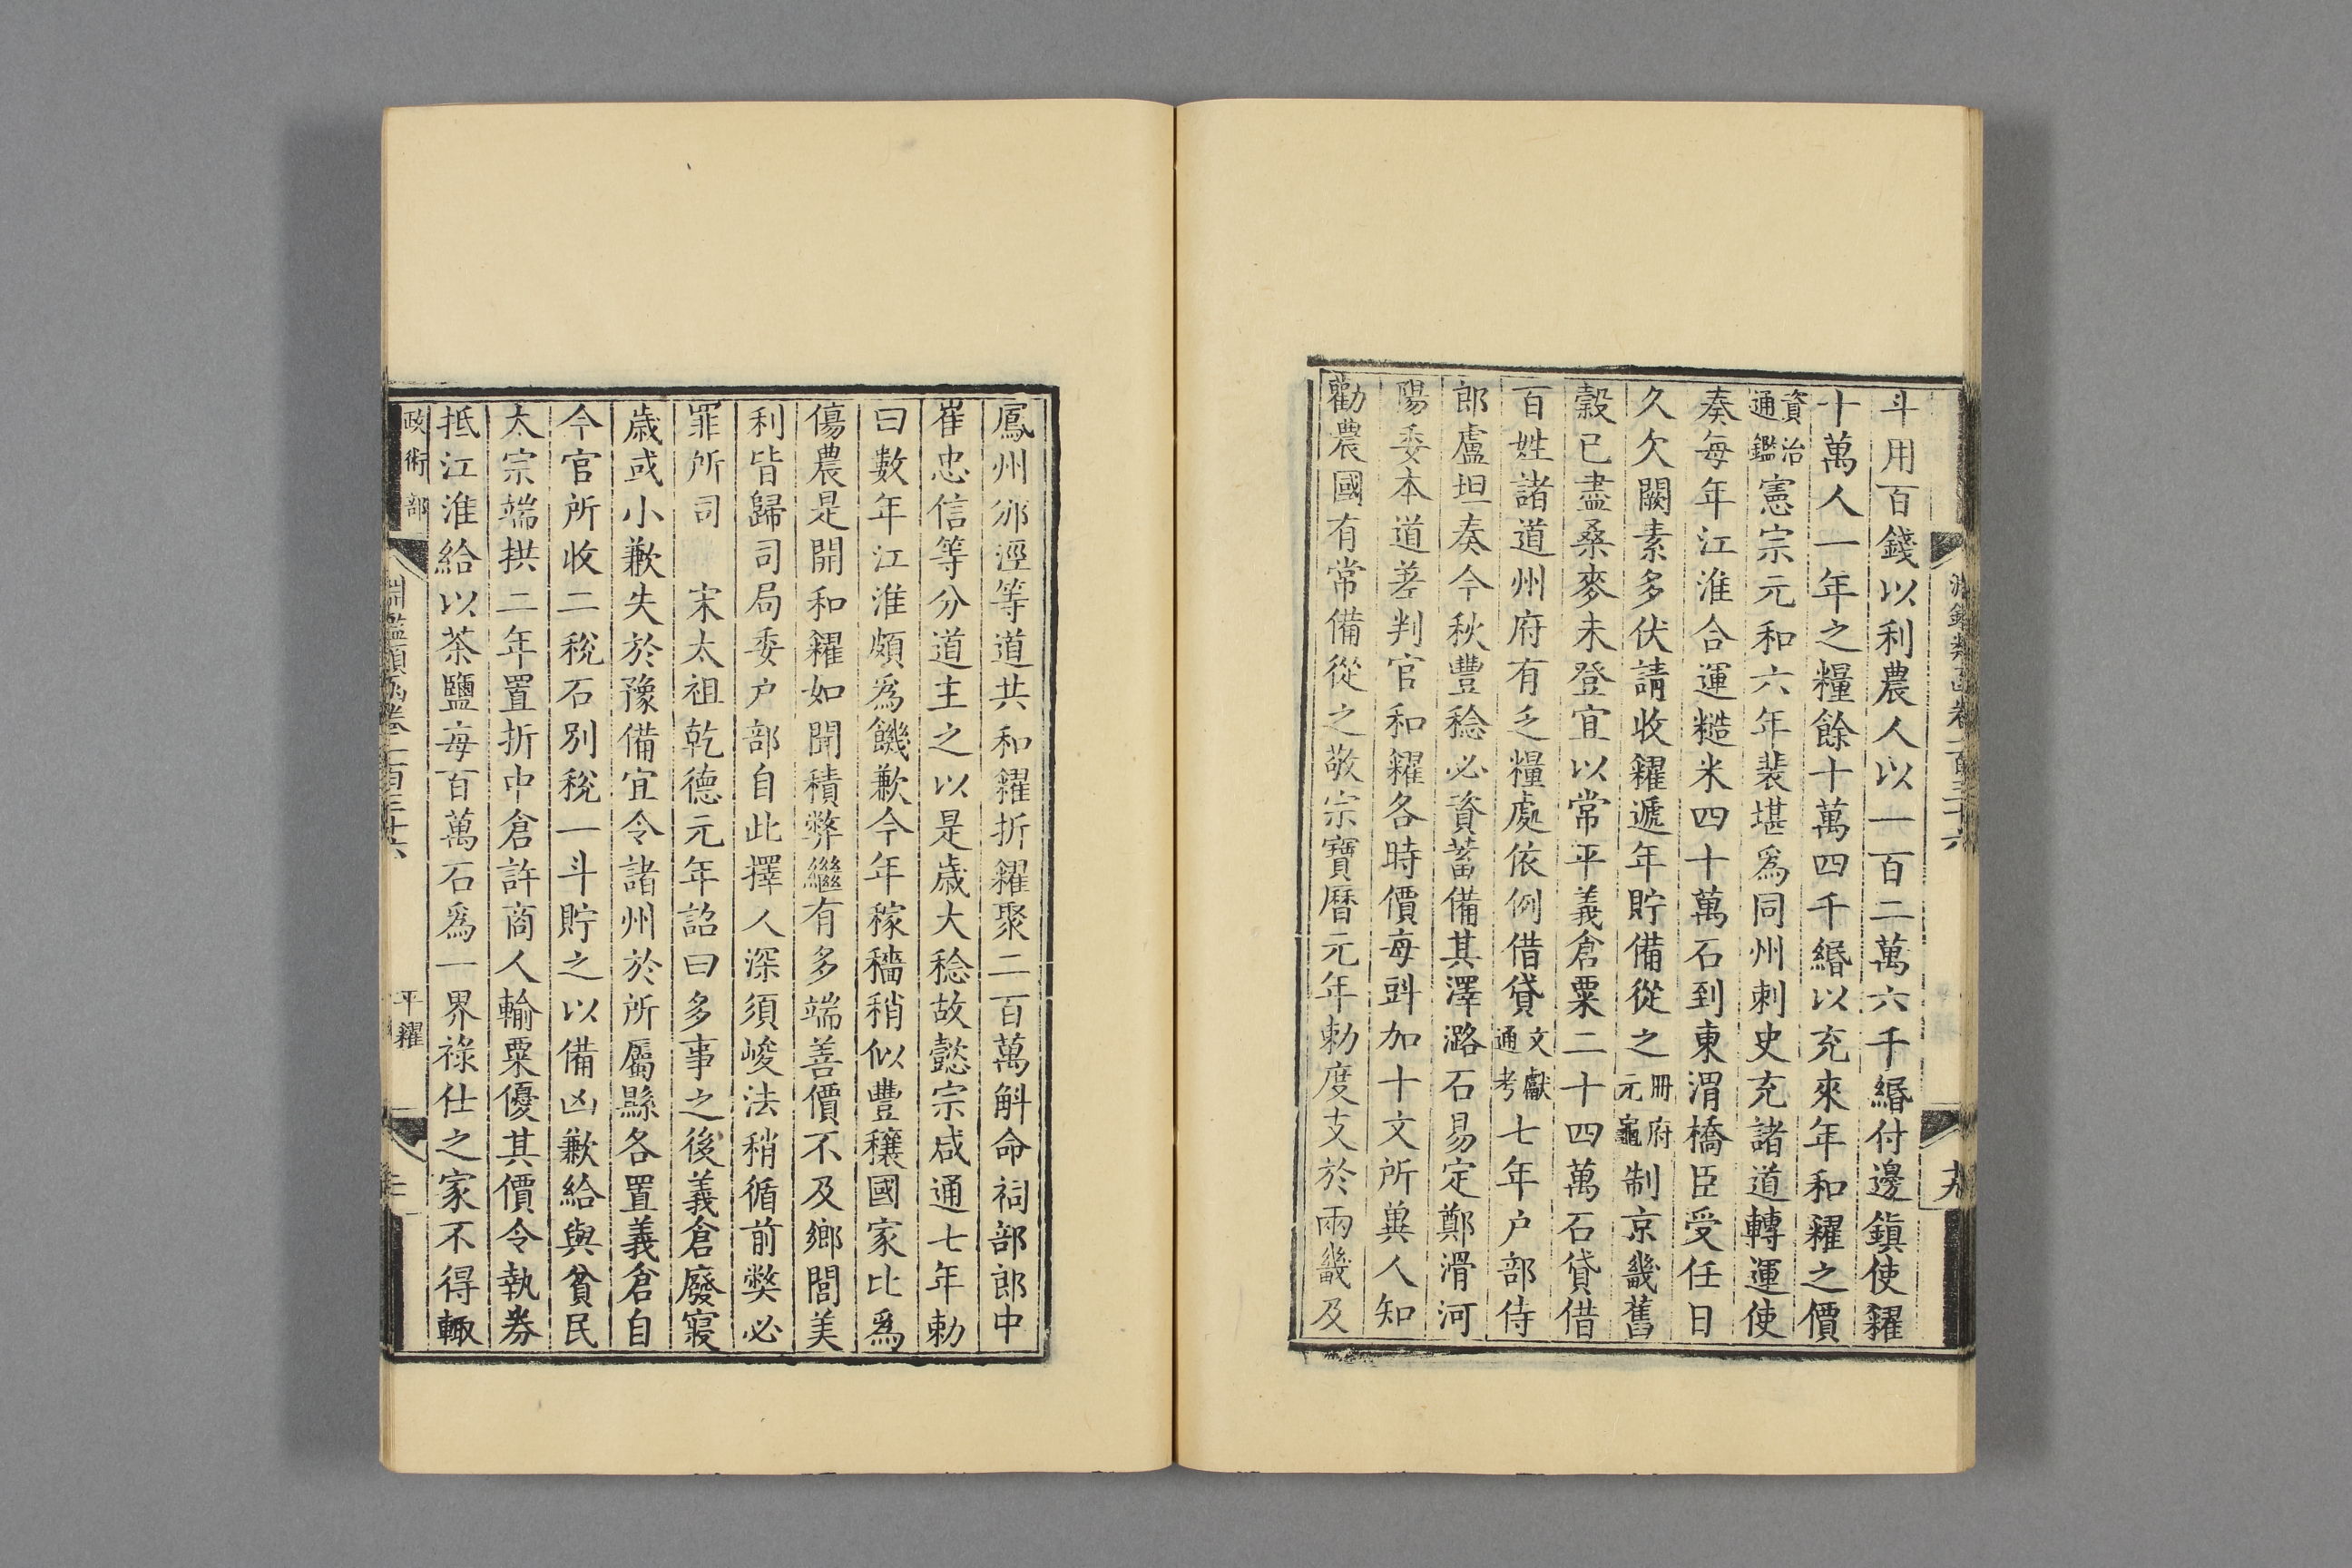 斗用百錢以利農人以一百二萬六千緡付邊鎮使糴
十萬人一年之糧餘十萬四千緡以充來年和糴之價
資治通鑑憲宗元和六年裴堪爲同州刺史充諸道轉運使
奏每年江淮合運糙米四十萬石到東渭橋臣受任日
久欠闕素多伏請收糴遞年貯備從之冊府元龜制京畿舊
穀已盡桑麥未登宜以常平義倉粟二十四萬石貸借
百姓諸道州府有乏糧處依例借貸文獻通考七年户部侍
郎盧坦奏今秋豐稔必資蓄備其澤潞石易定鄭滑河
陽委本道差判官和糴各時價每㪷加十文所冀人知
勸農國有常備從之敬宗寶曆元年勅度支於兩畿及
鳳州邠涇等道共和糴折糴聚二百萬斛命祠部郎中
崔忠信等分道主之以是歲大稔故懿宗咸通七年勅
曰數年江淮頗爲饑歉今年稼穡稍似豐穰國家比爲
傷農是開和糴如聞積弊繼有多端善價不及鄉閭美
利皆歸司局委户部自此擇人深須峻法稍循前獘必
罪所司　宋太祖乾德元年詔曰多事之後義倉廢寢
歲或小歉失於豫備宜令諸州於所屬縣各置義倉自
今官所收二稅石別稅一斗貯之以備凶歉給與貧民
太宗端拱二年置折中倉許商人輸粟優其價令執券
抵江淮給以茶鹽每百萬石爲一界祿仕之家不得輒
政術部
淵鑑類函卷一百三十六
平糴